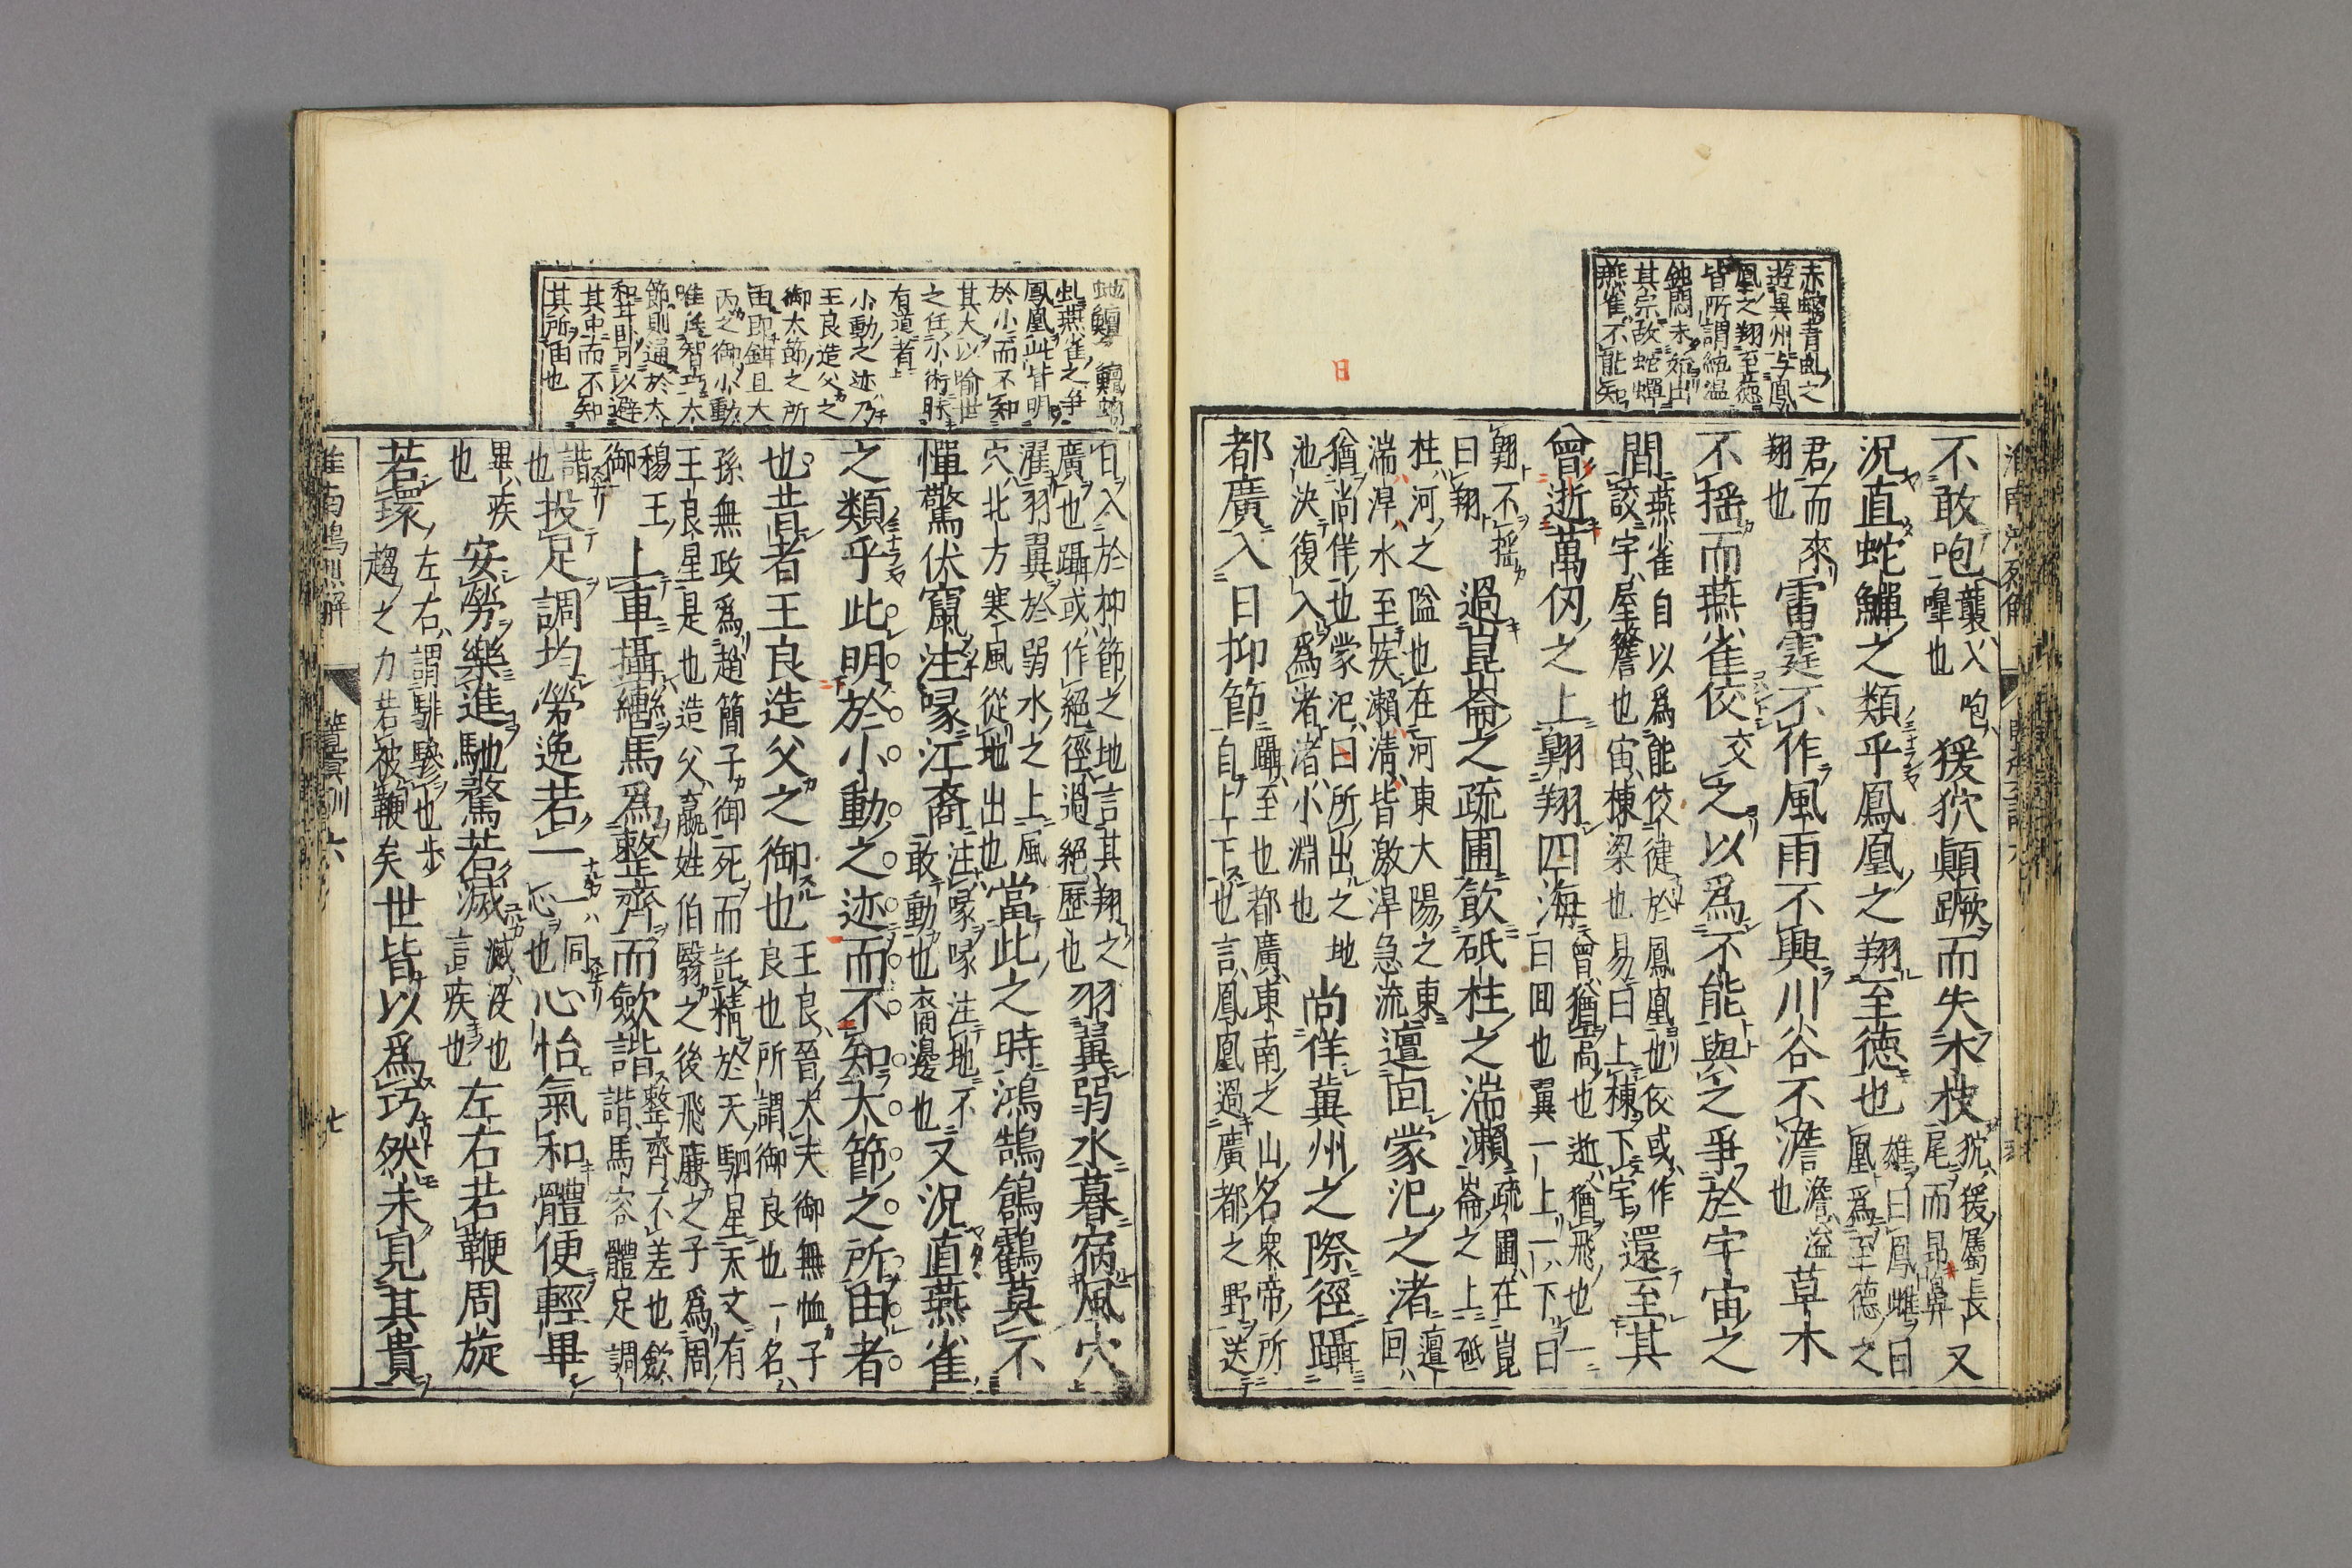 赤螭青虬之
遊冀州与鳳
凰之翔至徳
皆所謂純温
鈍悶未始出
其宗故蛇蟬
燕雀不能知
不敢咆襲入咆嘷也猨狖顛蹶而失木枝狖猨屬長尾而昂鼻又
況直蛇鱓之類乎鳳凰之翔至德也雄曰鳳雌曰凰爲至德之
君而來翔也雷霆不作風雨不興川谷不澹澹溢也草木
不搖而燕雀佼交之以爲不能與之爭於宇宙之
間燕雀自以爲能佼健於鳳凰也佼或作詨宇屋簷也宙棟梁也易曰上棟下宇還至其
曾逝萬仞之上翺翔四海曾猶高也逝猶飛也一曰回也翼一上一下曰
翺不搖曰翔過崑崙之疏圃飮砥柱之湍瀨疏圃在崑崙之上砥
柱河之隘也在河東大陽之東湍淖水至疾瀨淸皆激淖急流邅回蒙汜之渚邅回
猶尚佯也蒙汜曰所出之地池決復入爲渚渚小淵也尚佯冀州之際徑躡
都廣入日抑節躡至也都廣東南之山名衆帝所自上下也言鳳凰過廣都之野送
虵鱣鱣
虬燕雀之爭
鳳凰此皆明
於小而不知
其大以喻世
之任小術眛
有道者
小動之迹乃
王良造父之
御太節之所
由即鉗且大
丙之御小動
唯逞智巧太
節則通於太
和耳即可以避
其中而不知
其所由也
日入於抑節之地言其翔之廣也躡或作絕徑過絕歷也羽翼弱水暮宿風穴
濯羽翼於弱水之上風穴北方寒風從地出也當此之時鴻鵠鶬鸖莫不
憚驚伏竄注喙江裔注喙喙注地不敢動也裔邊也又況直燕雀
之類乎此明於小動之迹而不知太節之所由者
也昔者王良造父之御也王良晉大夫御無恤子良也所謂御良也一名
孫無政爲趙簡子御死而託精於天駟星天文有王良星是也造父嬴姓伯翳之後飛廉之子爲周
穆王御上車攝轡馬爲整齊而歛諧整齊不差也歛諧馬容體足調
諧也投足調均勞逸若一一同心也心怡氣和體便輕畢
畢疾也安勞樂進馳騖若滅滅沒也言疾也左右若鞭周旋
若環左右謂騑驂也步趨之力若被鞭矣世皆以爲巧然未見其貴